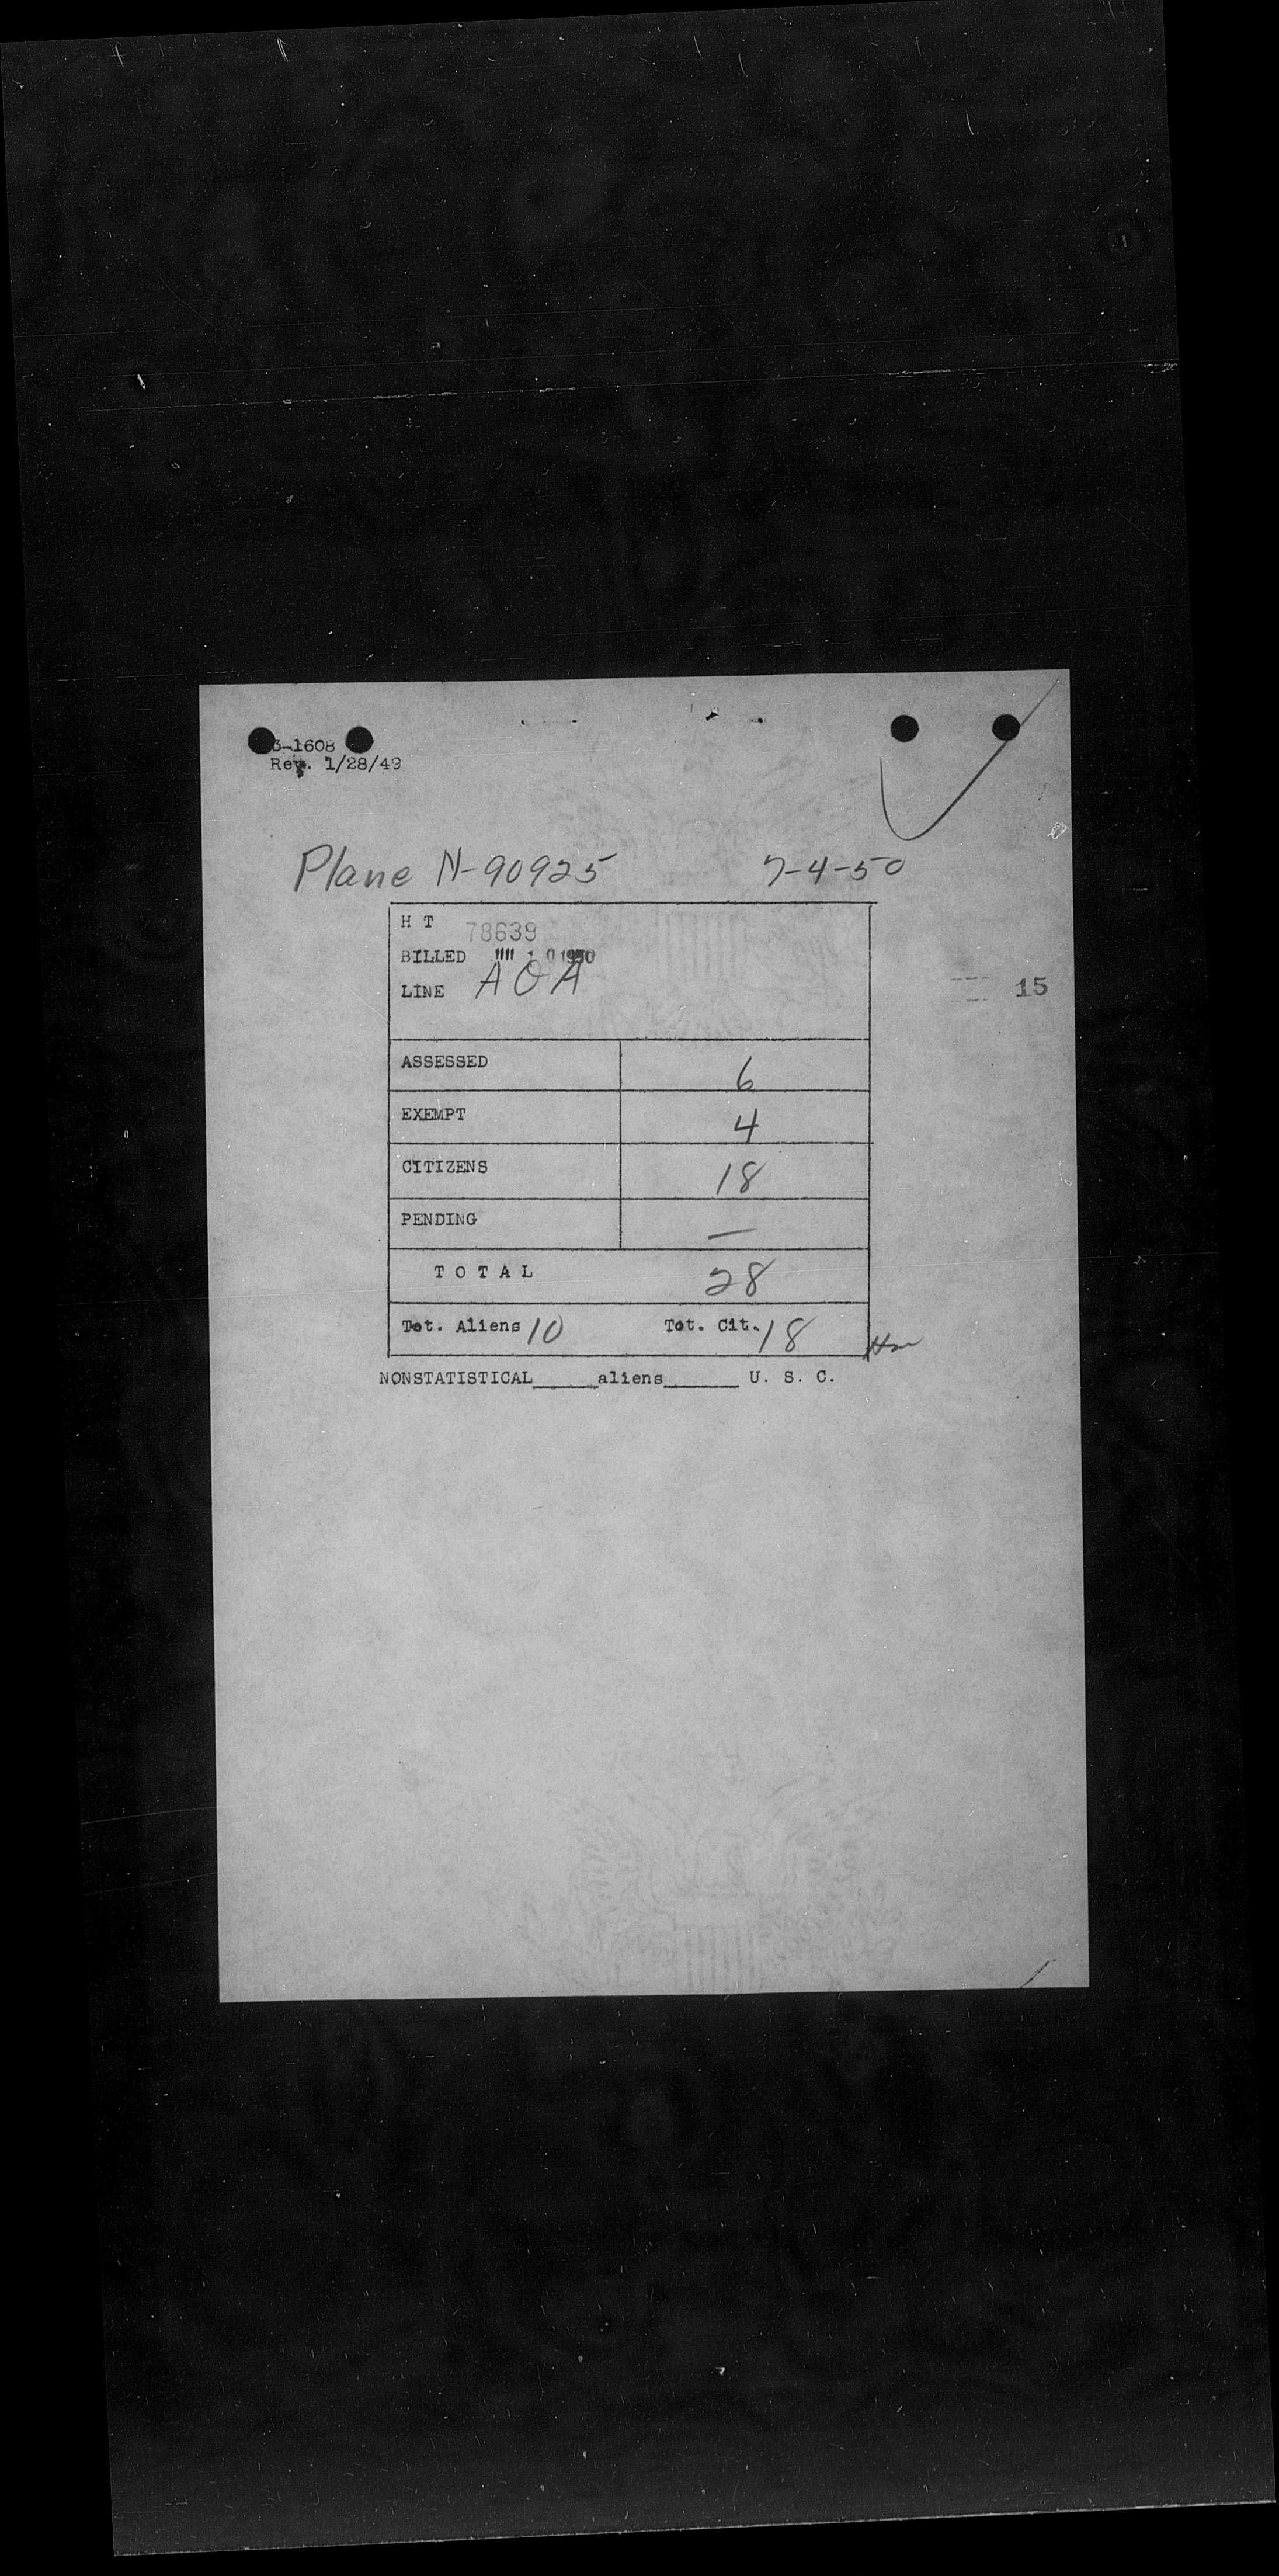 3-1608
Rev. 1/28/49
Plane N-90925 7-4-50
H T 78639
BILLED 10 1950
LINE AOA
15
ASSESSED 6
EXEMPT 4
CITIZENS 18
PENDING —
TOTAL 28
Tot. Aliens 10 Tot. Cit. 18
NONSTATISTICAL_____aliens______ U. S. C.